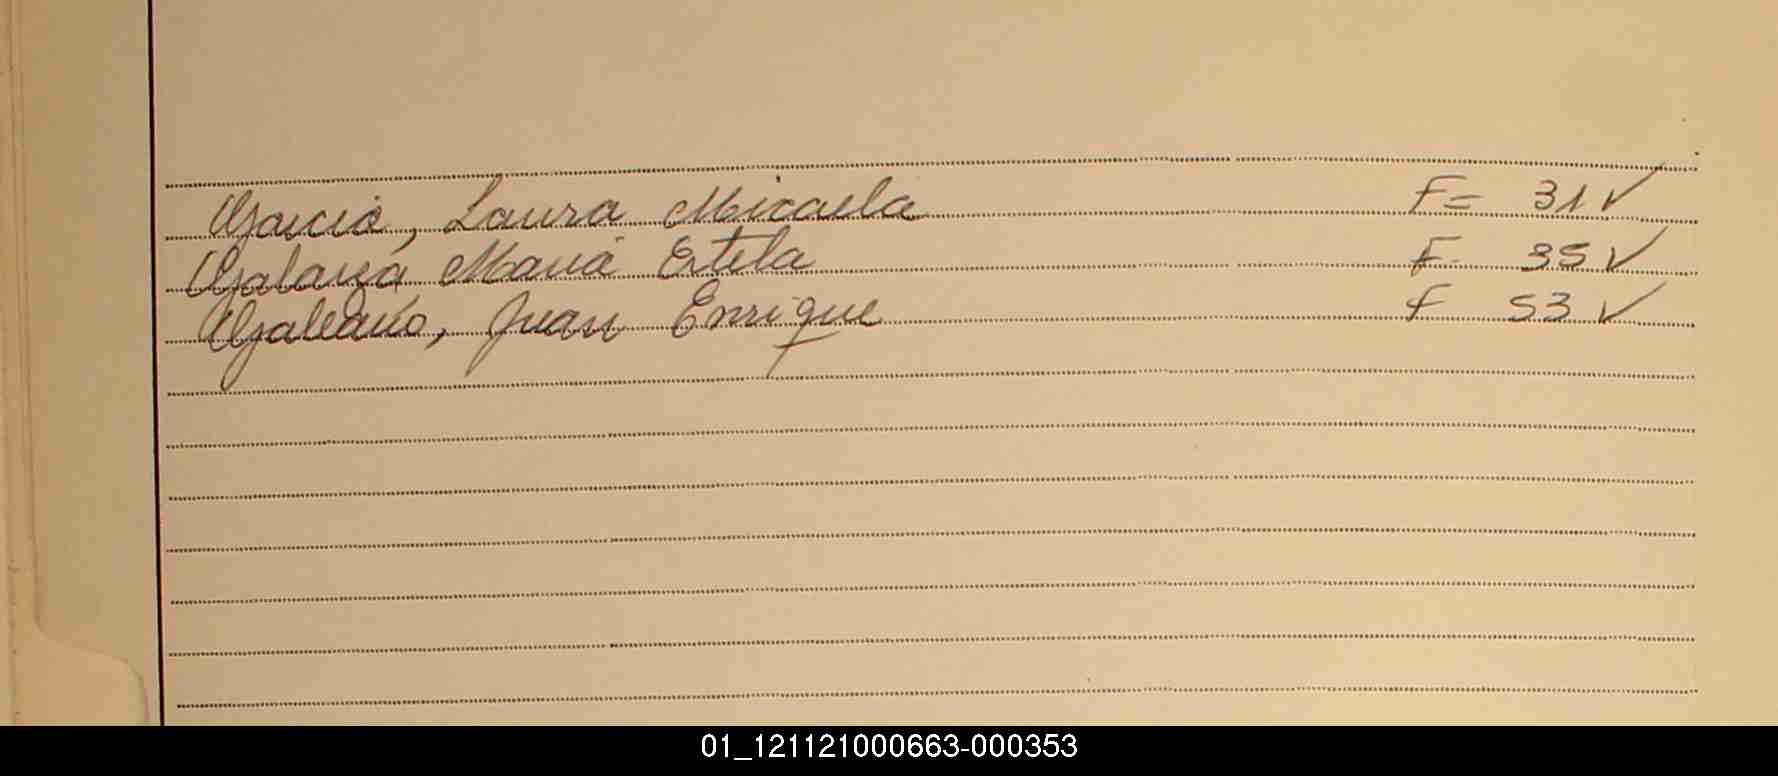 Garcia, Laura Micaela F= 31 ✓
Galarza Maria Estela F. 35 ✓
Galeano, Juan Enrique F 53 ✓
01_121121000663-000353